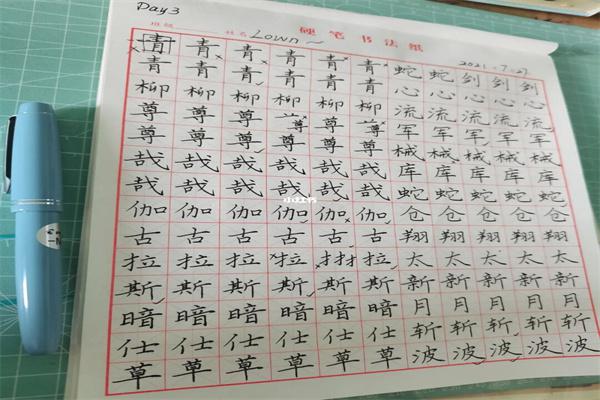 Day3
班级 姓名 Lown~ 硬笔书法纸
2021.7.27.
青青青青青青蛇蛇剑剑剑
青青青青青青心心心心心
柳柳柳柳柳柳流流流流流
尊尊尊尊尊尊军军军军军
尊尊尊尊尊尊械械械械械
哉哉哉哉哉哉库库库库库
哉哉哉哉哉哉蛇蛇蛇蛇蛇
伽伽伽伽伽伽仓仓仓仓仓
古古古古古古翔翔翔翔翔
拉拉拉拉拉拉太太太太太
斯斯斯斯斯斯新新新新新
暗暗暗暗暗暗月月月月月
仕仕仕仕仕仕斩斩斩斩斩
草草草草草草波波波波波
小红书